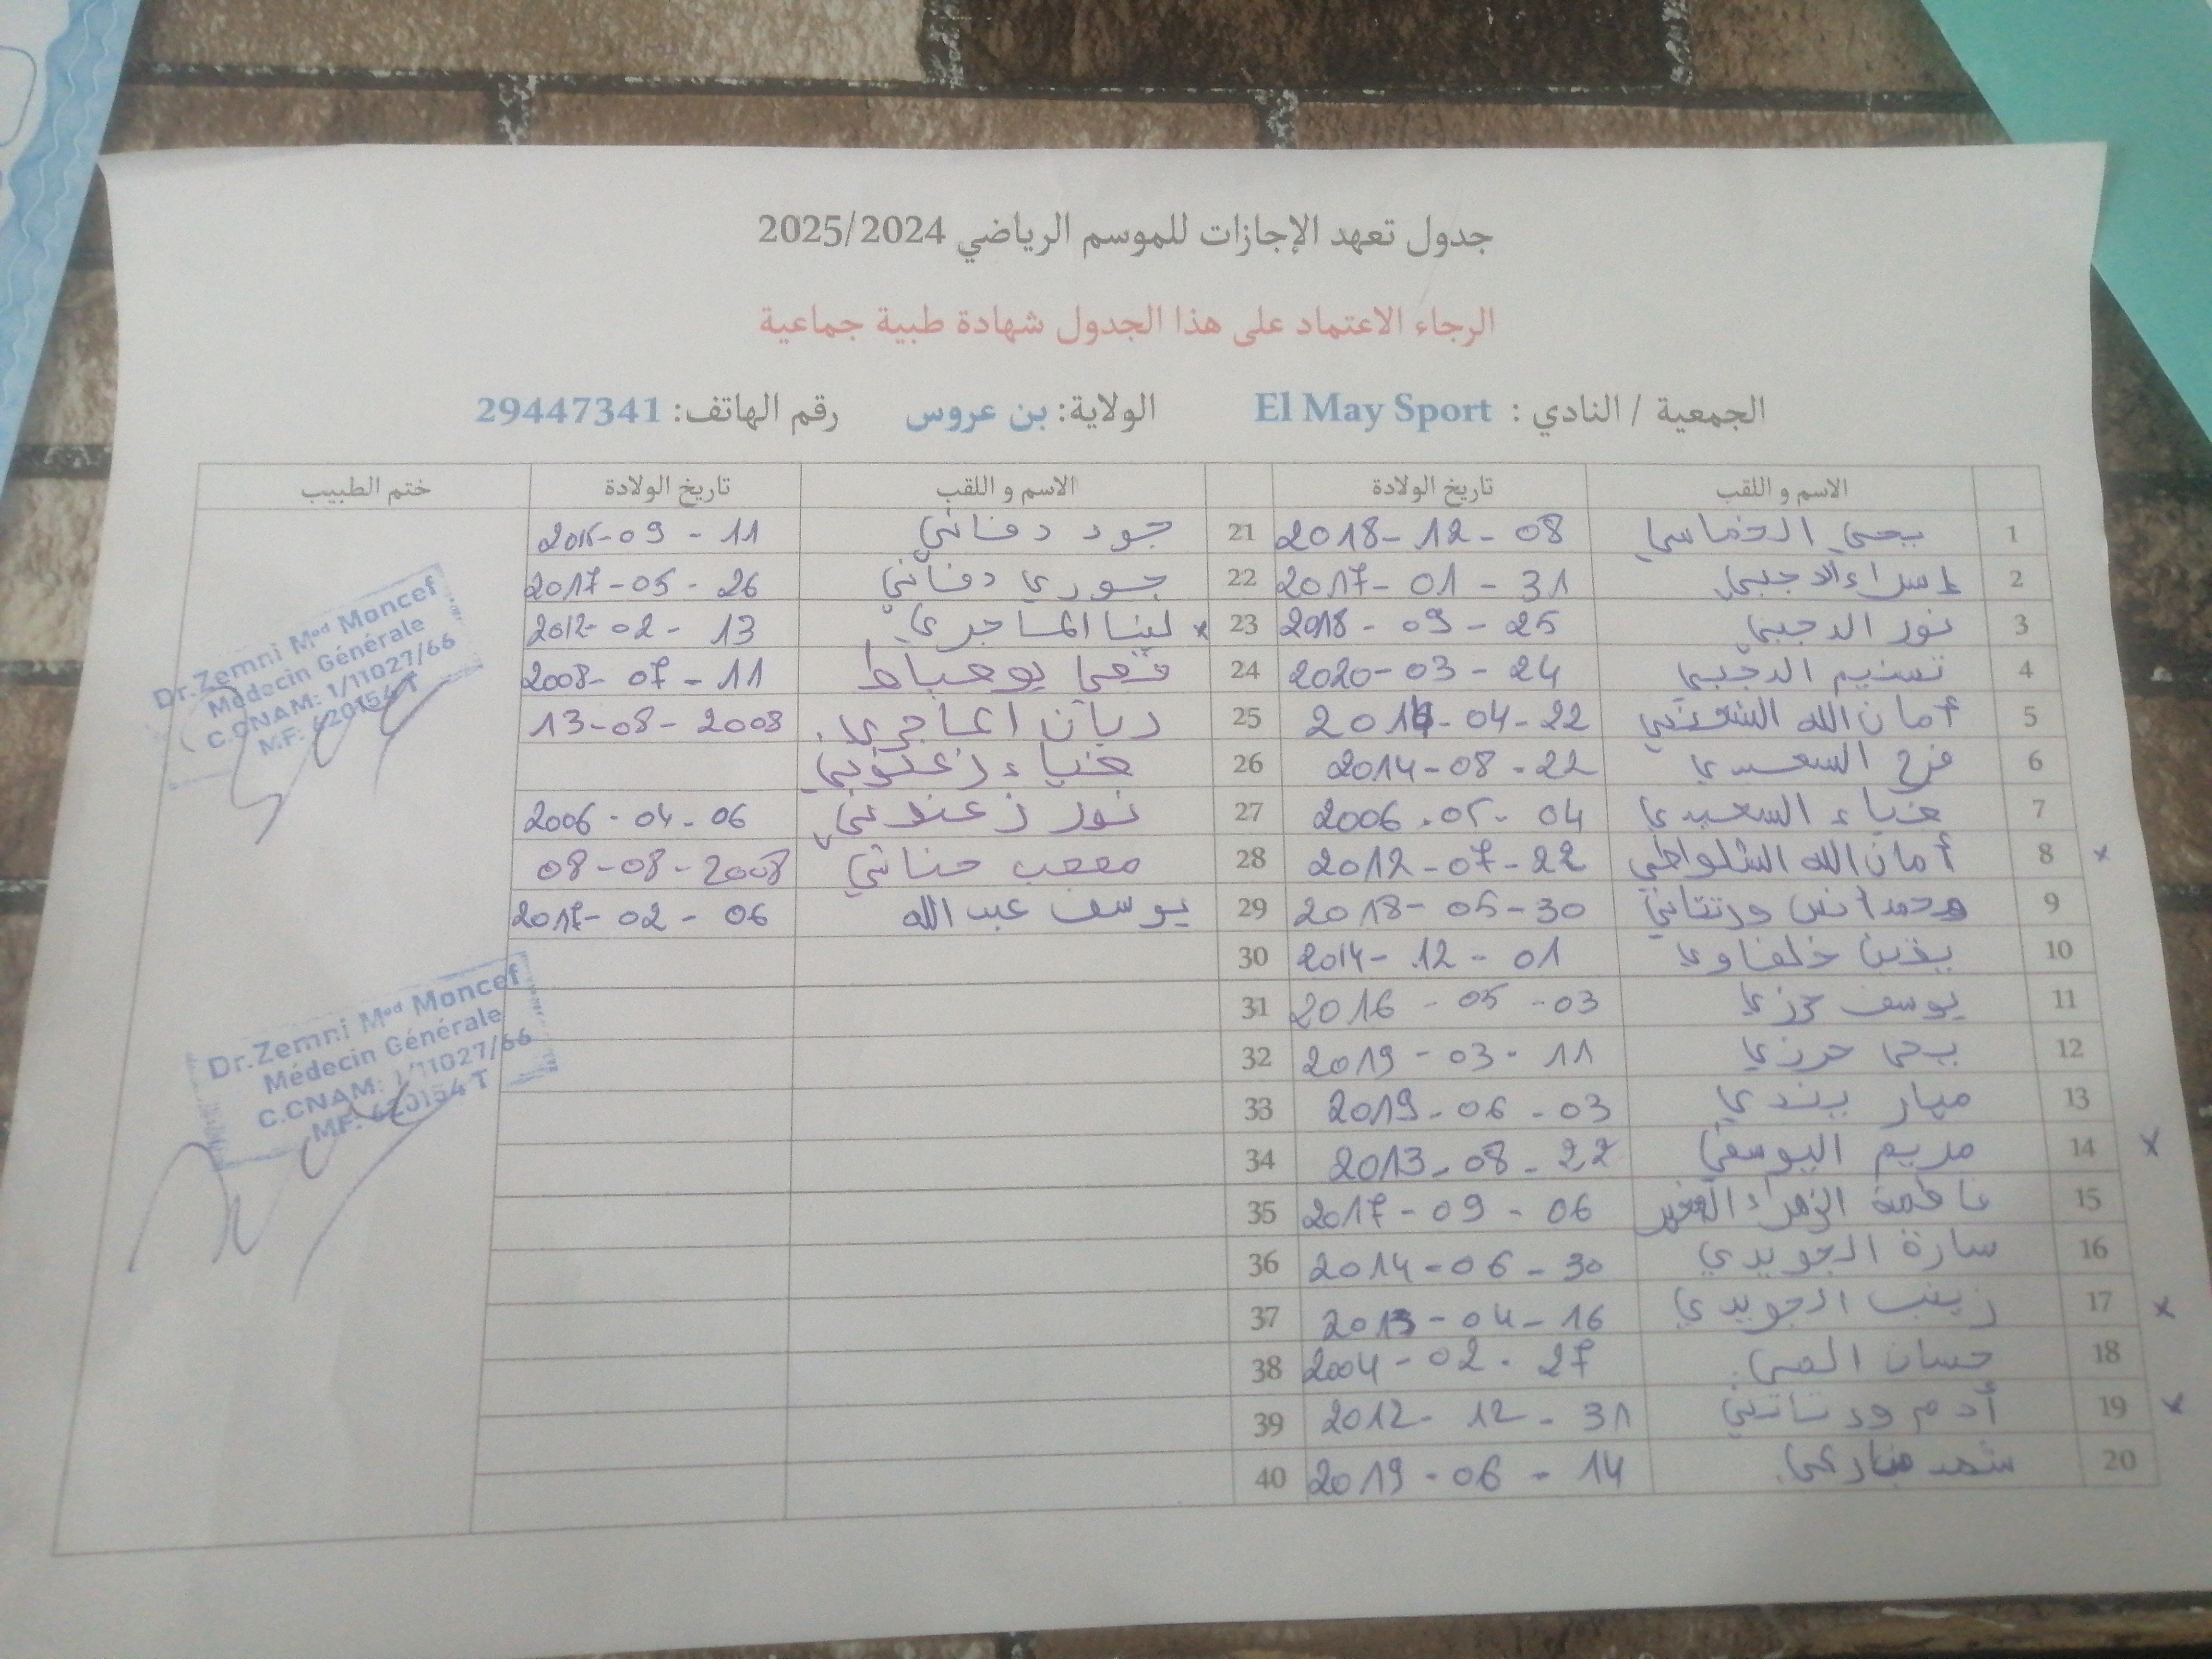 جدول تعهد الإجازات للموسم الرياضي 2025/2024
الرجاء الاعتماد على هذا الجدول شهادة طبية جماعية
الجمعية / النادي : El May Sport الولاية: بن عروس رقم الهاتف: 29447341
الاسم و اللقب تاريخ الولادة الاسم و اللقب تاريخ الولادة ختم الطبيب
1 يحيى الخماسي 2018-12-08 21 جود دفاني 11-09
2 إسراء الدجبي 2017-01-31 22 جوري دفاني 2017-05-26
3 نور الدجبي 2018-09-25 23 x لينا الماجري 2012-02-13
4 تسنيم الدجبي 2020-03-24 24 2008-07-11
5 أمان الله 04-22 25 ريان الماجري 13-08-2008
6 فرح السعيدي 2014-08-22 26 ضياء زعنوني
7 ضياء السعيدي 2006-05-04 27 نور زعنوني 2006-04-06
8 x أمان الله الشلواطي 2012-07-22 28 مصعب حناني 08-08-2008
9 محمد أنس ورتتاني 2018-05-30 29 يوسف عبد الله 2017-02-06
10 يزن خلفاوي 2014-12-01 30
11 يوسف حرزي 2016-05-03 31
12 يحي حرزي 2019-03-11 32
13 ميار 2019-06-03 33
14 x مريم اليوسفي 2013-08-22 34
15 فاطمة الزهراء 2017-09-06 35
16 سارة الجويدي 2014-06-30 36
17 x زينب الجويدي 2013-04-16 37
18 حسان 2004-02-27 38
19 x أدم ورتتاني 2012-12-31 39
20 شهد 2019-06-14 40
Dr.Zemni Med Moncef
Médecin Générale
C.CNAM: 1/11027/66
M.F: 620154 T
Dr.Zemni Med Moncef
Médecin Générale
C.CNAM: 1/11027/66
MF: 620154 T